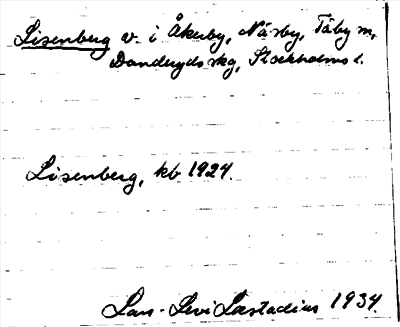 Lisenberg v. i Åkerby, Näsby, Täby m,
Danderyds skg, Stockholms l.
Lisenberg, kb 1924.
Lars-Levi Læstadius 1934.